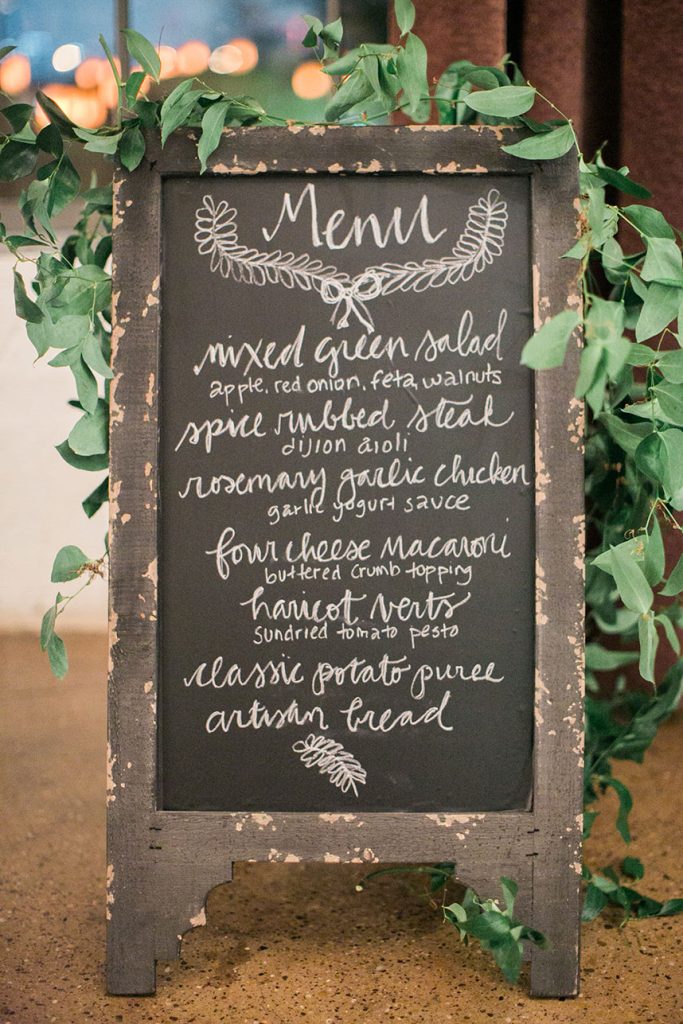 Menu
mixed green salad
apple, red onion, feta, walnuts
spice rubbed steak
dijion aioli
rosemary garlic chicken
garlic yogurt sauce
four cheese macaroni
buttered crumb topping
haricot verts
sundried tomato pesto
classic potato puree
artisan bread